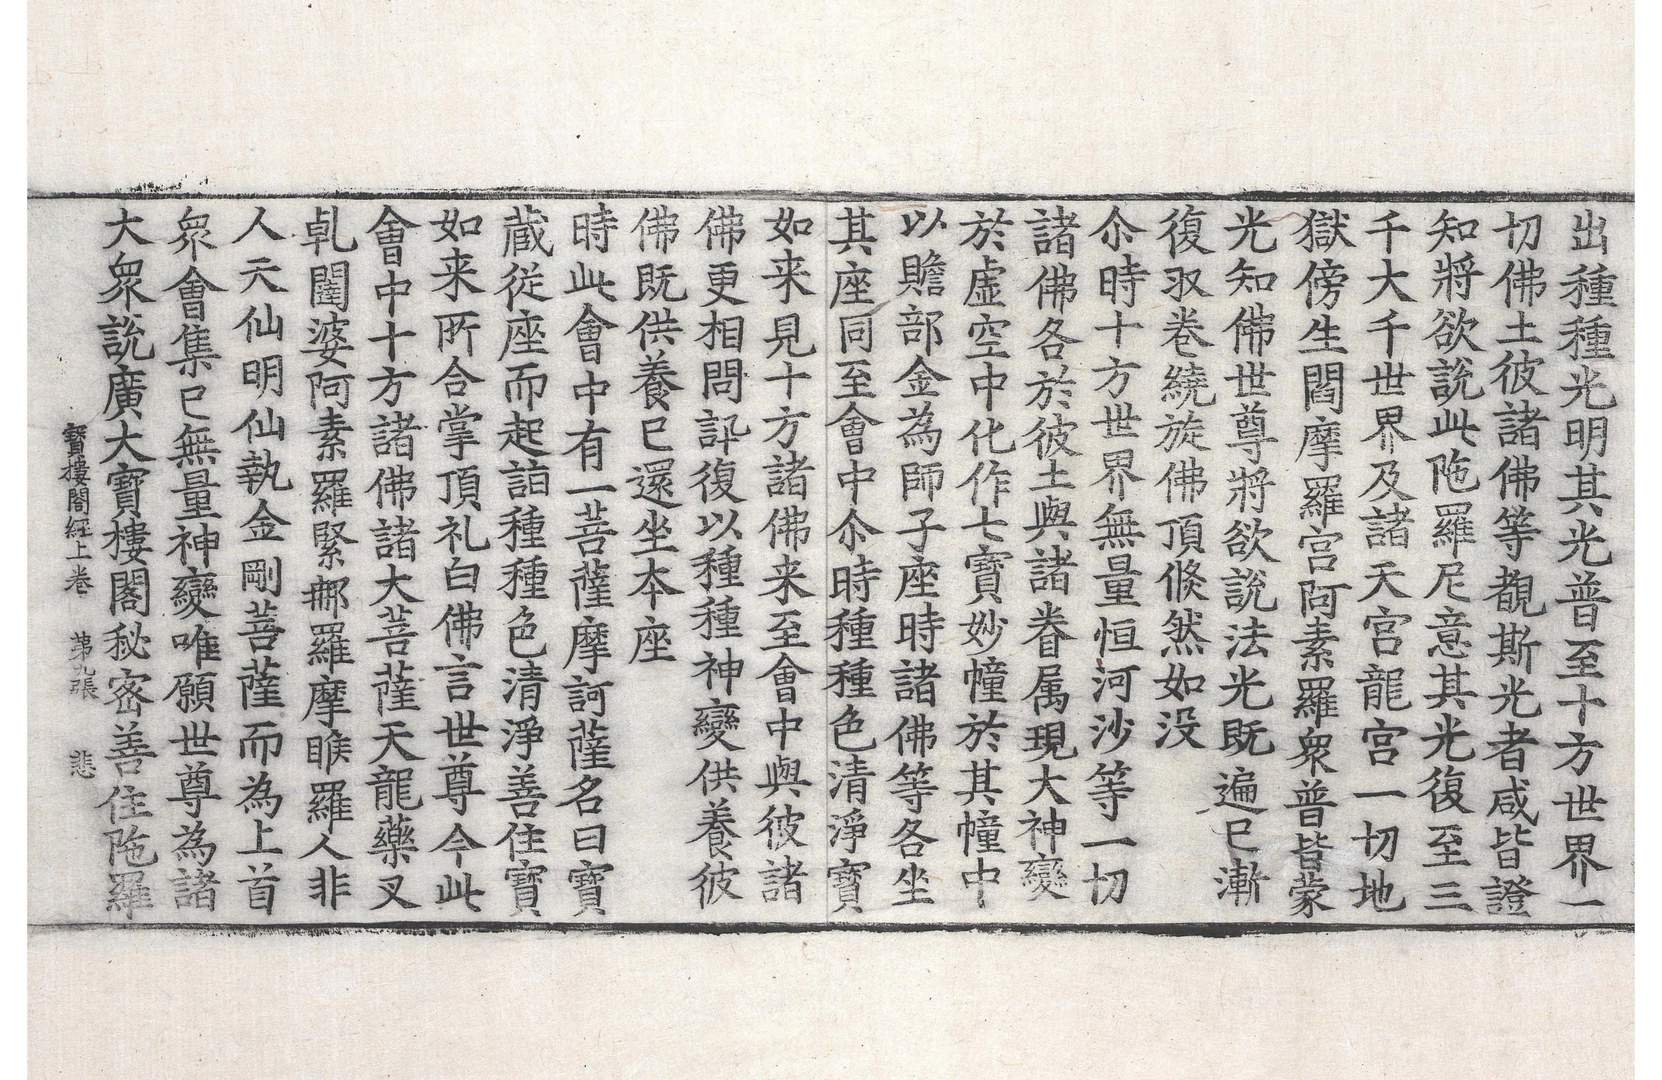 出種種光明其光普至十方世界一
切佛土彼諸佛等覩斯光者咸皆證
知將欲說此陁羅尼意其光復至三
千大千世界及諸天宮龍宮一切地
獄傍生閻摩羅宮阿素羅衆普皆蒙
光知佛世尊將欲說法光既遍已漸
復収卷繞旋佛頂倐然如没
尒時十方世界無量恒河沙等一切
諸佛各於彼土與諸眷属現大神變
於虛空中化作七寶妙幢於其幢中
以贍部金為師子座時諸佛等各坐
其座同至會中尒時種種色清淨寶
如来見十方諸佛来至會中與彼諸
佛更相問訊復以種種神變供養彼
佛既供養已還坐本座
時此會中有一菩薩摩訶薩名曰寶
蔵從座而起詣種種色清淨善住寶
如来所合掌頂礼白佛言世尊今此
會中十方諸佛諸大菩薩天龍藥叉
乹闥婆阿素羅緊㮈羅摩睺羅人非
人天仙明仙執金剛菩薩而為上首
衆會集已無量神變唯願世尊為諸
大衆說廣大寶樓閣秘密善住陁羅
寶樓閣經上卷 苐九張 悲